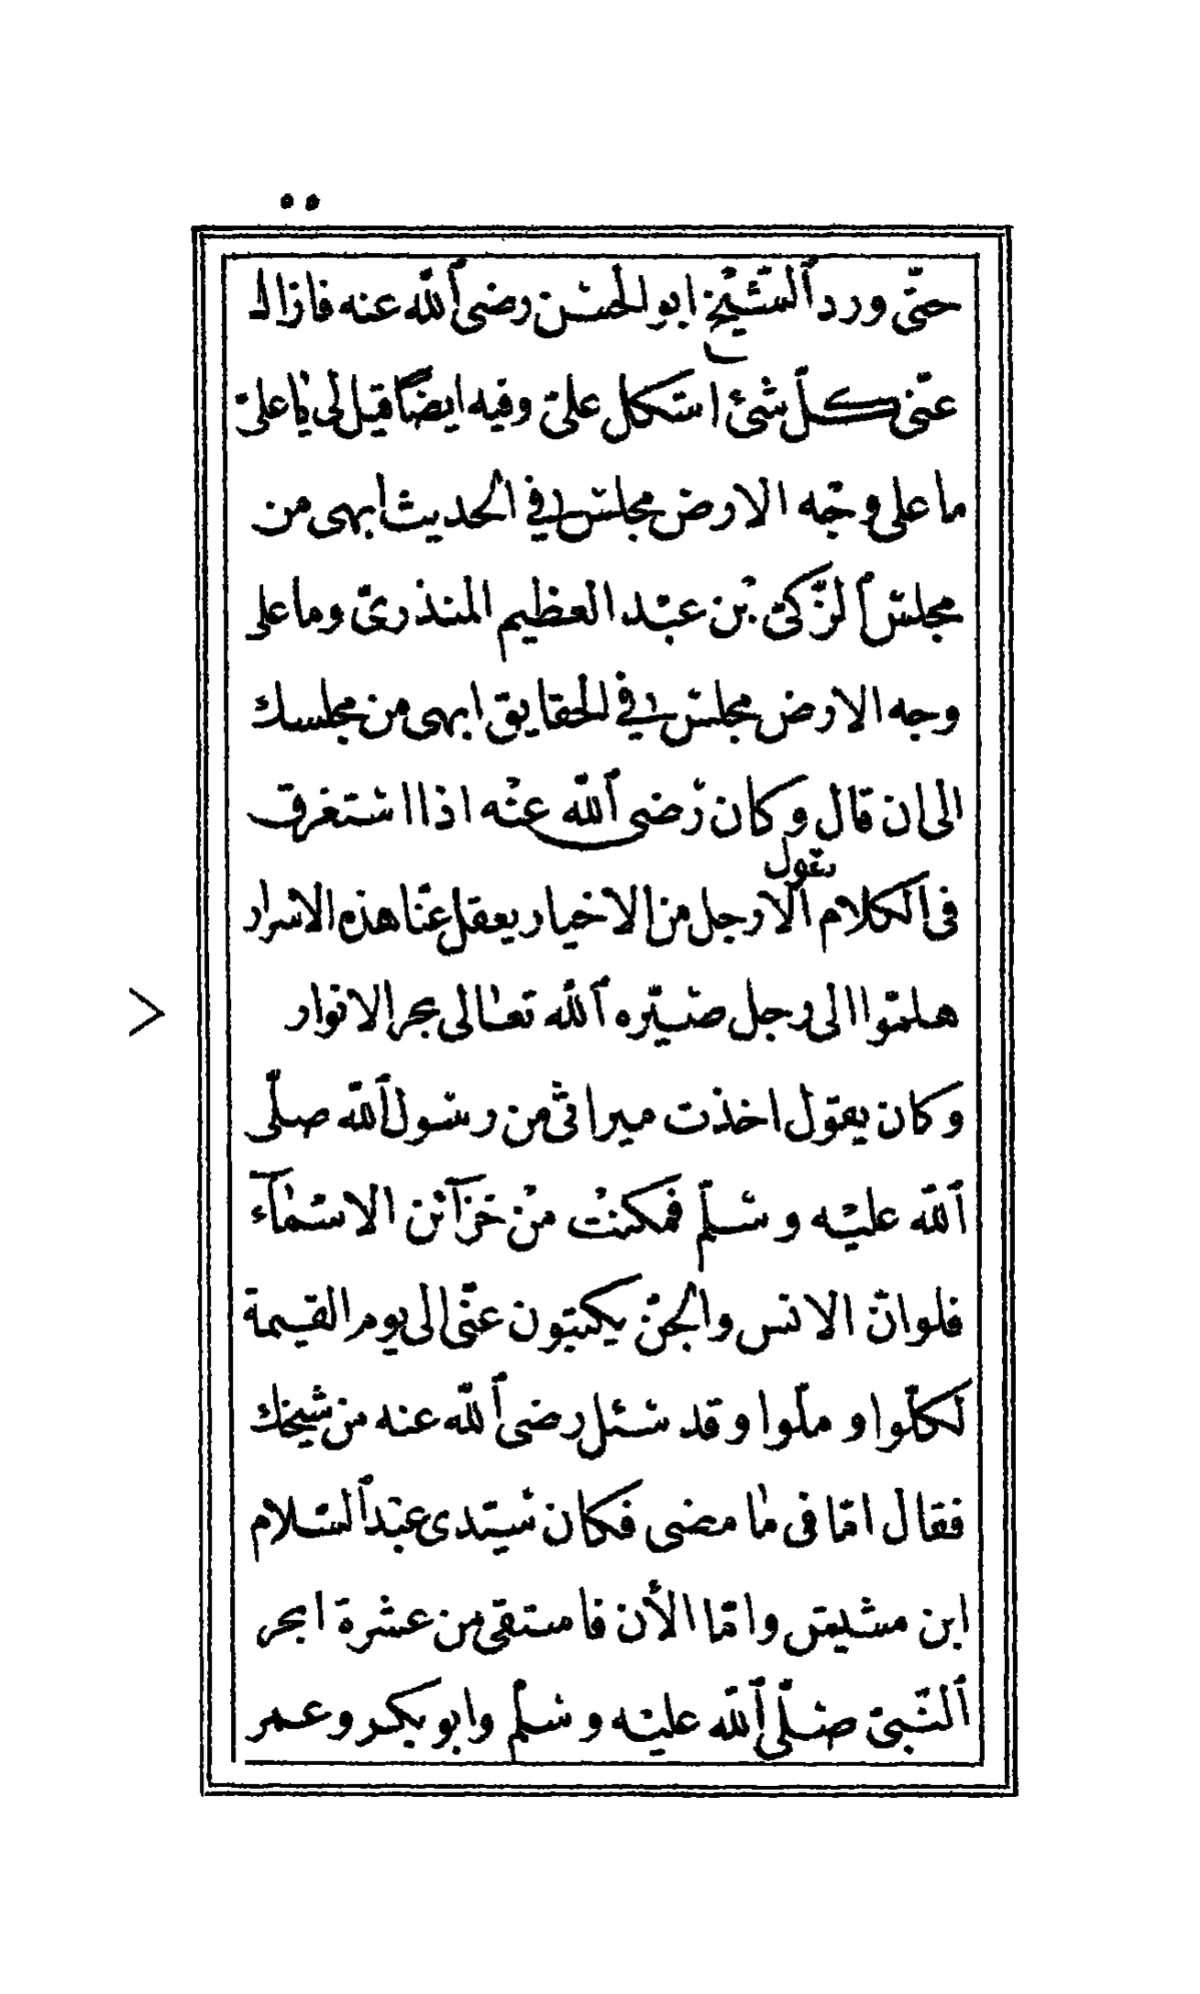 حتّى ورد ٱلشّيْخ ابو الحسن رضى ٱللّه عنه فازال
عنّى كلّ شئ استكل علىّ وفيه ايضًا قيل لى يا على
ما على وجْه الارض مجلس فى الحديث ابهى من
مجلس ٱلزّكىّ بْن عبْد العظيم المنذرىّ وما على
وجه الارض مجلس فى الحقايق ابهى من مجلسك
الى ان قال وكان رضى ٱللّه عنْه اذا استغرق
يقول
فى ٱلكلام ألا رجل من الاخيار يعقل عنّا هذه الاسرار
هلمّوا الى رجل صيّره ٱللّه تعالى بحر الانوار
وكان يقول اخذت ميراثى من رسول ٱللّه صلّى
ٱللّه عليْه وسلّم فمكنْت منْ خزآئن الاسْمآء
فلوانّ الانس والجنّ يكتبون عنّى الى يوم القيمة
لكلّوا و ملّوا وقد سئل رضى ٱللّه عنه من شيخك
فقال امّا فى ما مضى فكان سيّدى عبْد ٱلسّلام
ابن مشيش وامّا الأن فاستقى من عشرة ابحر
ٱلنّبىّ صلّى ٱللّه عليْه وسلّم وابو بكر وعمر